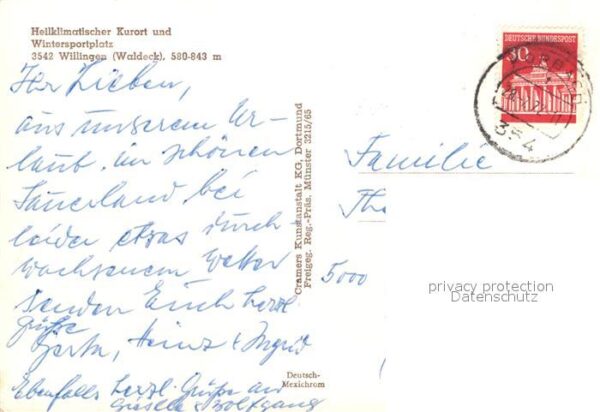 Heilklimatischer Kurort und
Wintersportplatz
3542 Willingen (Waldeck), 580-843 m
Ihr Lieben,
aus unserem Ur-
laub im schönen
Sauerland bei
leider etwas durch-
wachsenem Wetter
senden Euch herzl.
Grüße
Gerta, Heinz & Ingrid
Ebenfalls herzl. Grüße an
Gisela & Wolfgang
Deutsch-
Mexichrom
Cramers Kunstanstalt KG, Dortmund
Freigeg. Reg.-Präs. Münster 3215/65
DEUTSCHE BUNDESPOST
30
354
Familie
Th
5000
privacy protection
Datenschutz